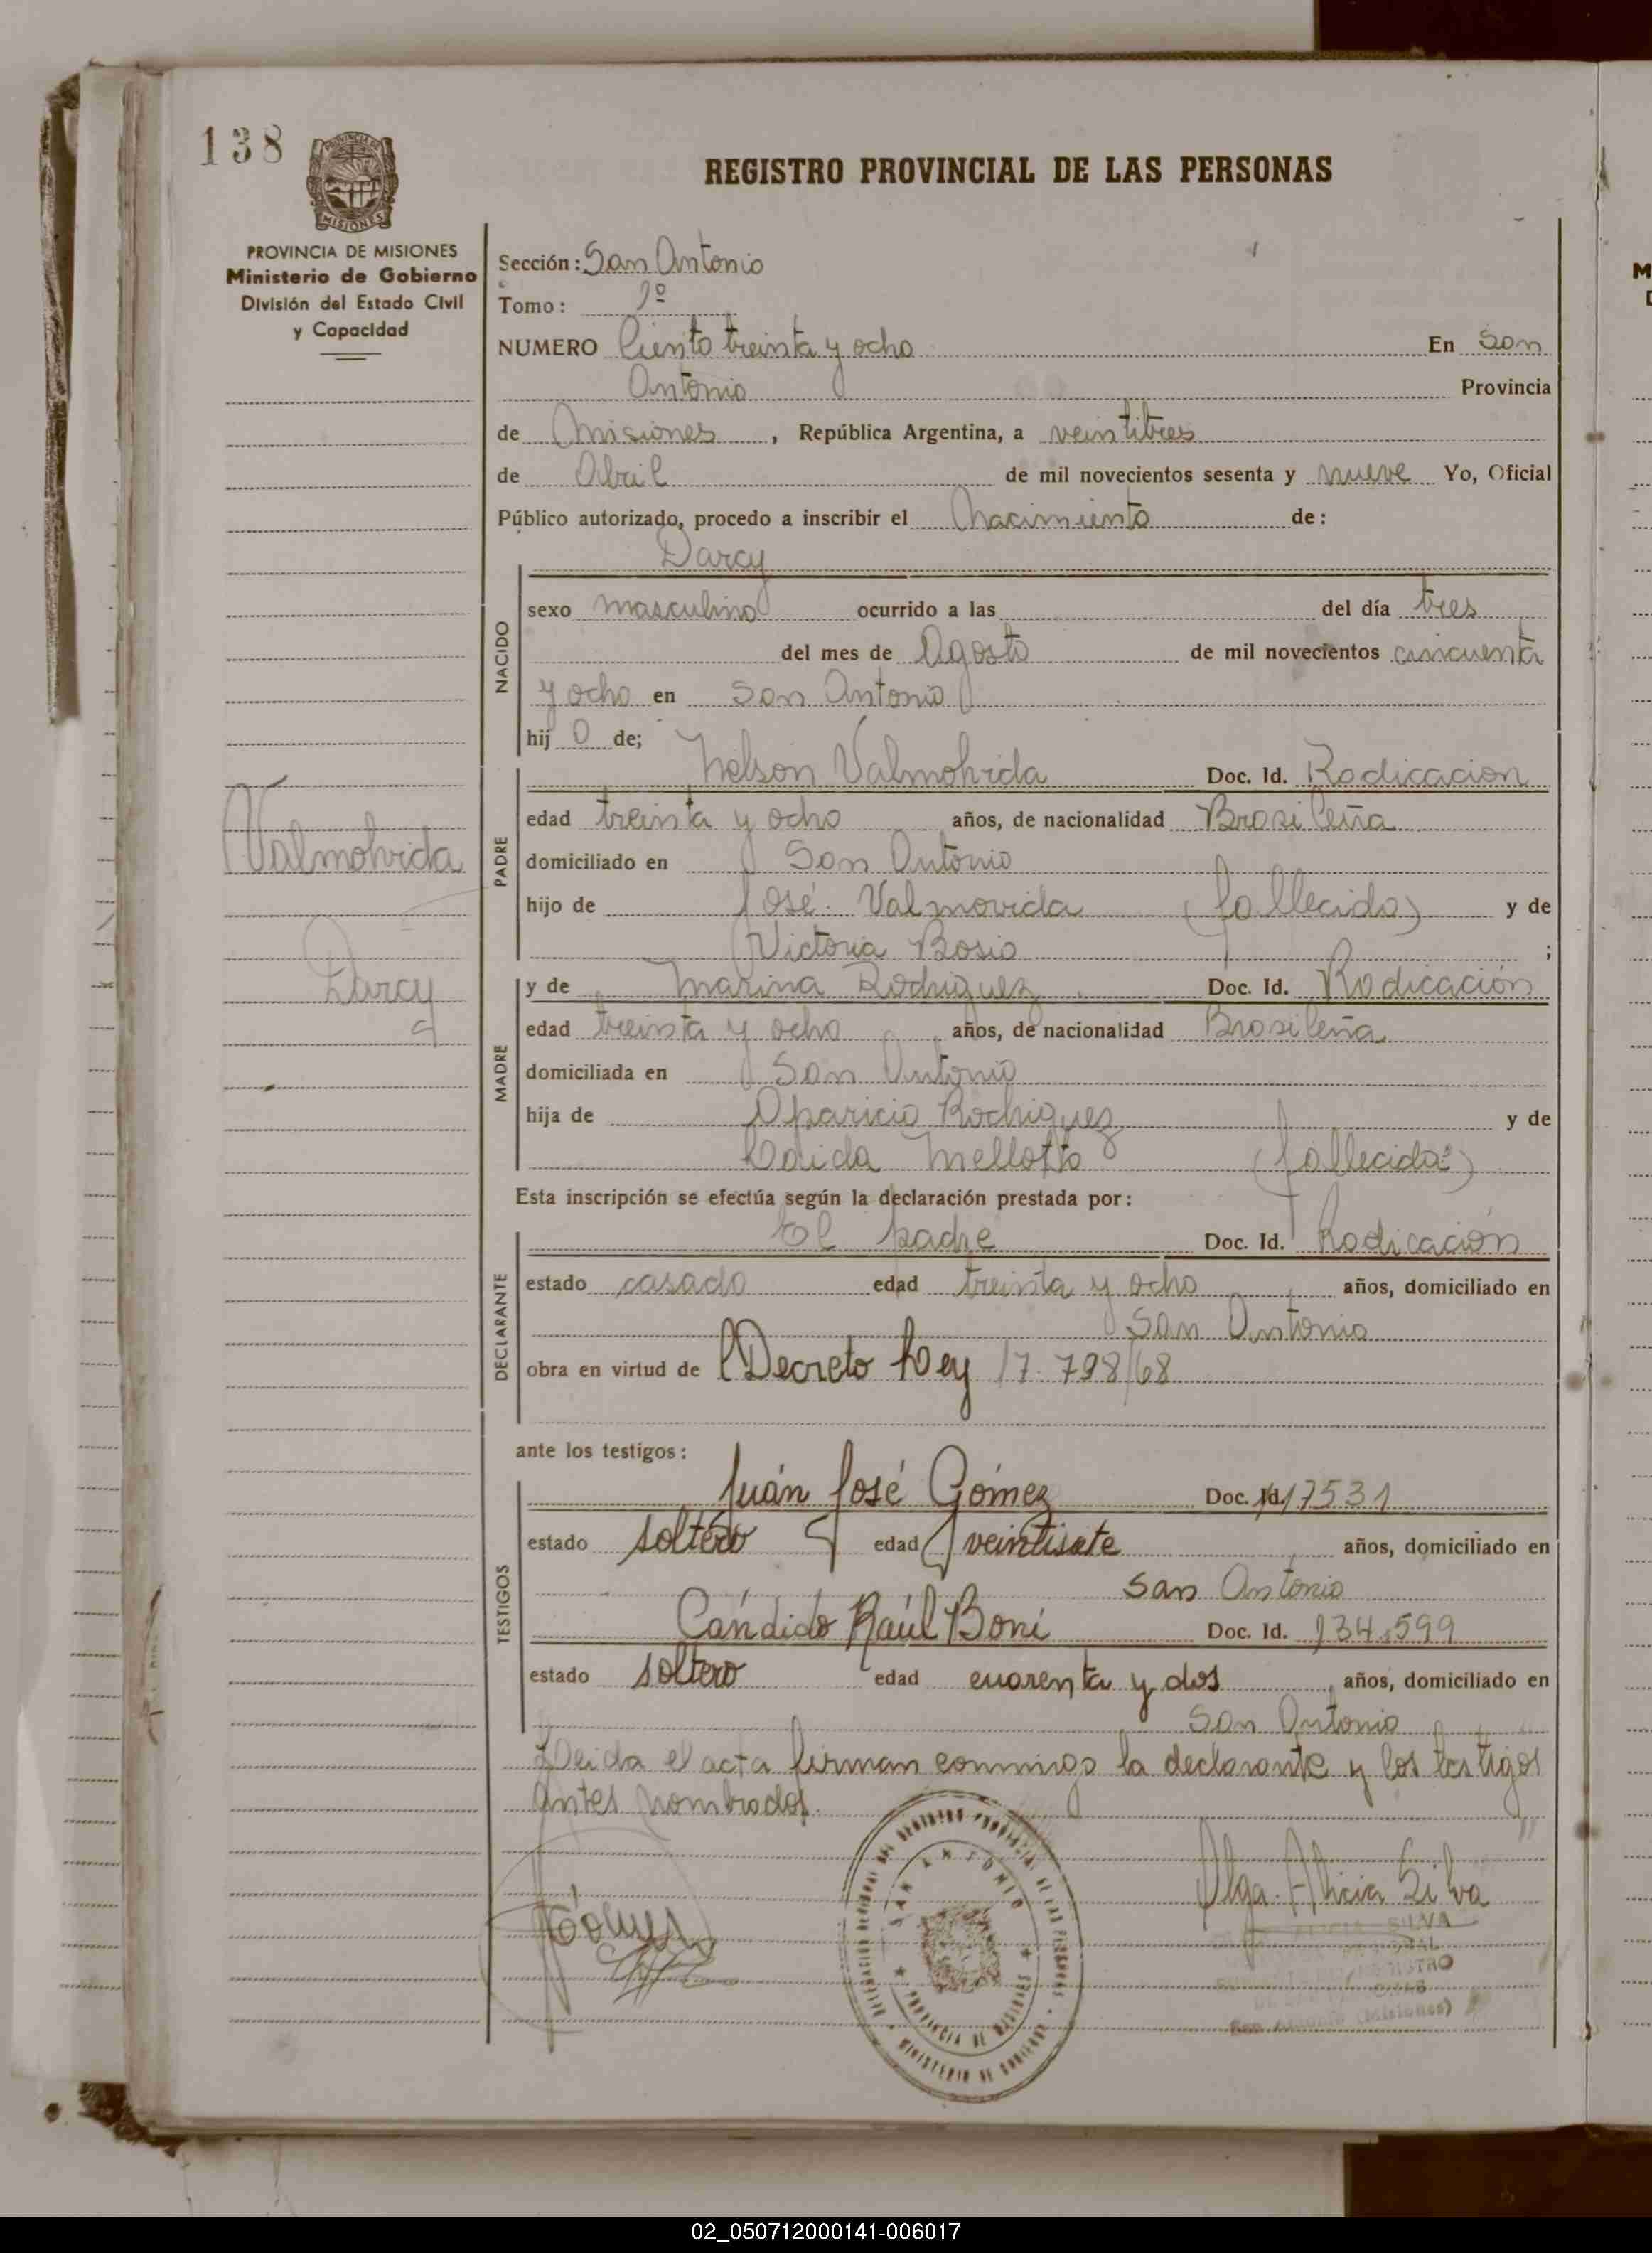 138
PROVINCIA DE MISIONES
Ministerio de Gobierno
División del Estado Civil
y Capacidad
REGISTRO PROVINCIAL DE LAS PERSONAS
Sección: San Antonio
Tomo: 1º
NUMERO Ciento treinta y ocho En San
Antonio Provincia
de Misiones, República Argentina, a veintitres
de Abril de mil novecientos sesenta y nueve Yo, Oficial
Público autorizado, procedo a inscribir el Nacimiento de:
Darcy
NACIDO
sexo masculino ocurrido a las del día tres
del mes de Agosto de mil novecientos cincuenta
y ocho en San Antonio
hij o de;
Nelson Valmohrida Doc. Id. Radicacion
PADRE
edad treinta y ocho años, de nacionalidad Brasileña
Valmohrida
domiciliado en San Antonio
hijo de José Valmovida (fallecido) y de
Victoria Bosio ;
Darcy
y de Marina Rodriguez Doc. Id. Radicación
MADRE
edad treinta y ocho años, de nacionalidad Brasileña
domiciliada en San Antonio
hija de Aparicio Rodriguez y de
Mellotto (fallecida)
Esta inscripción se efectúa según la declaración prestada por:
El padre Doc. Id. Radicación
DECLARANTE
estado casado edad treinta y ocho años, domiciliado en
San Antonio
obra en virtud de Decreto Ley 17.798/68
ante los testigos:
Juán José Gómez Doc. Id. 117531
TESTIGOS
estado soltero edad veintisete años, domiciliado en
San Antonio
Cándido Raúl Boni Doc. Id. 134.599
estado soltero edad cuarenta y dos años, domiciliado en
San Antonio
Leida el acta firman conmigo la declarante y los testigos
antes nombrados.
Olga Alicia Silva
Gómez
ALICIA SILVA
SAN ANTONIO
PROVINCIA DE MISIONES
MINISTERIO DE GOBIERNO
San Antonio (Misiones)
02_050712000141-006017